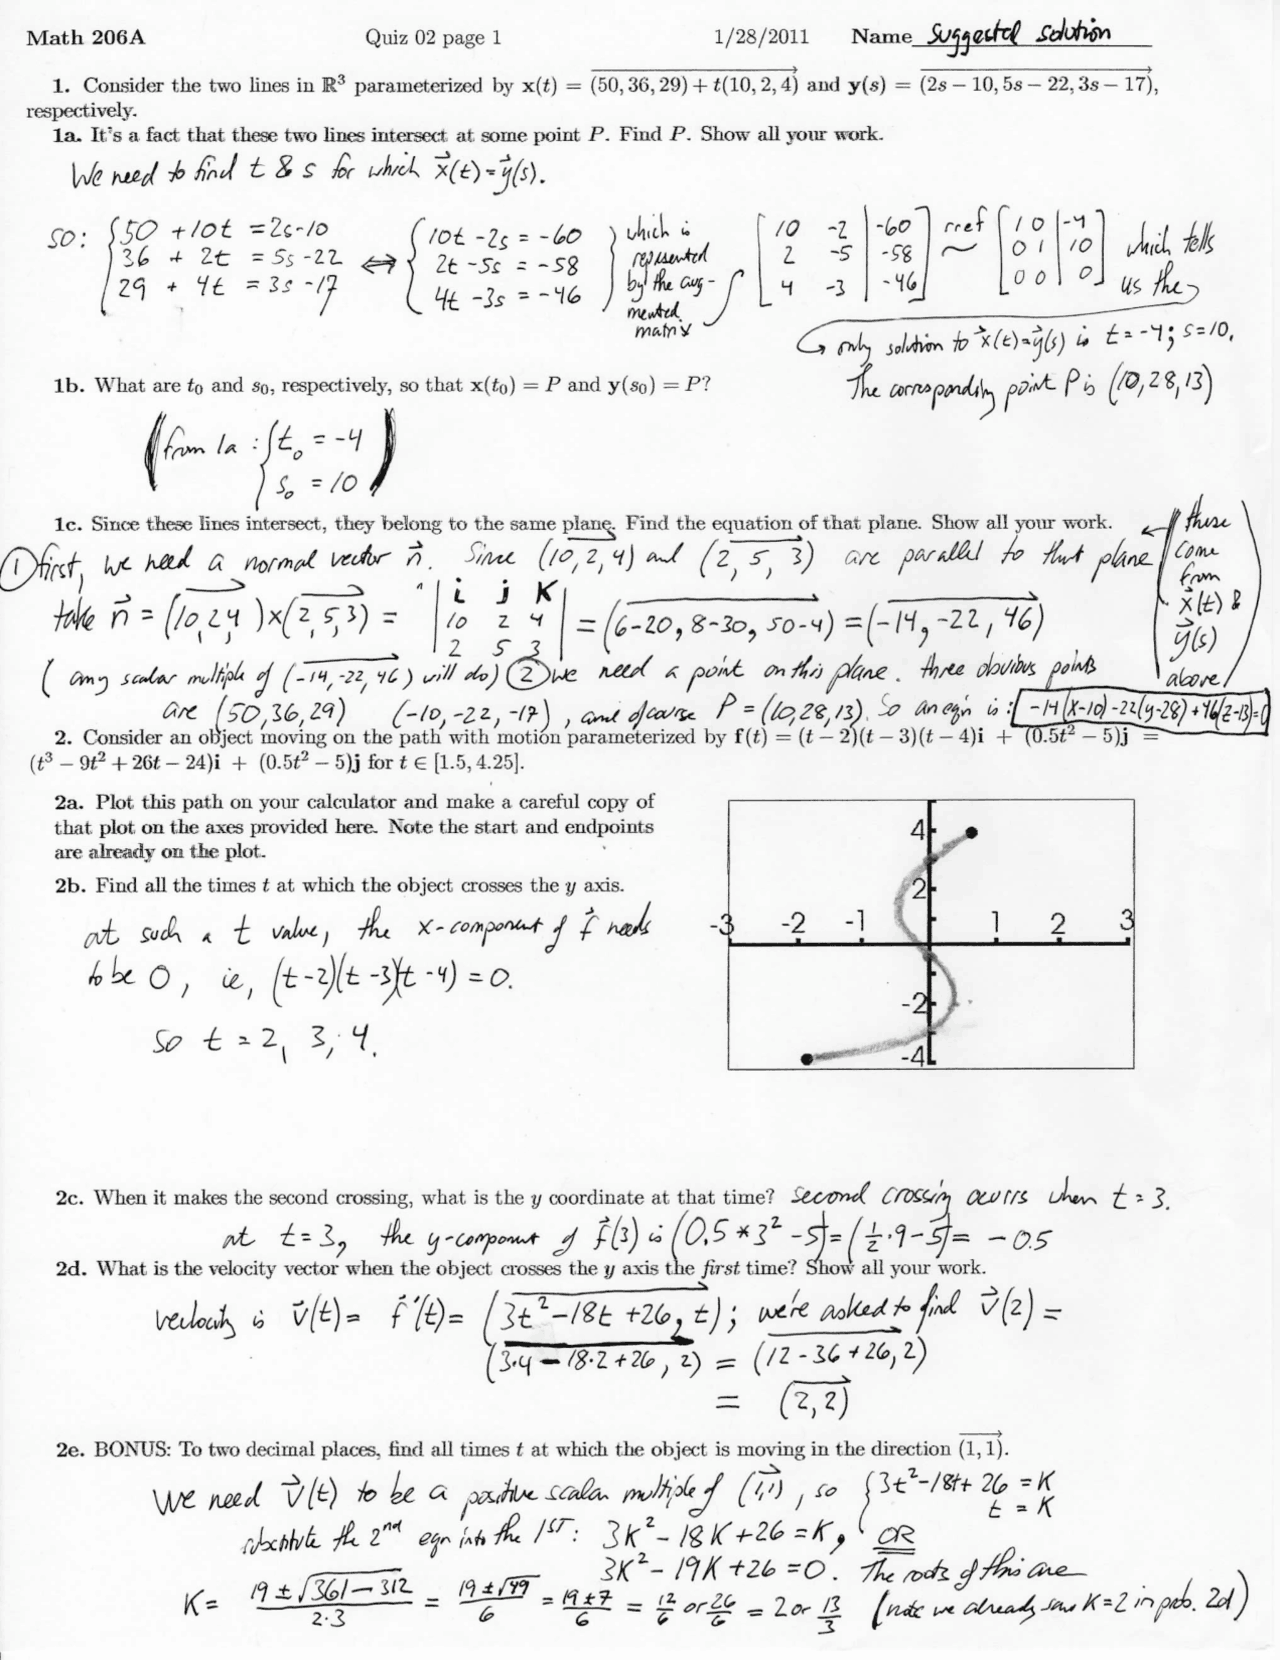 Math 206A Quiz 02 page 1 1/28/2011 Name Suggested solution
1. Consider the two lines in ℝ³ parameterized by x(t) = (50, 36, 29) + t(10, 2, 4) and y(s) = (2s − 10, 5s − 22, 3s − 17),
respectively.
1a. It's a fact that these two lines intersect at some point P. Find P. Show all your work.
We need to find t & s for which x⃗(t) = y⃗(s).
so: { 50 + 10t = 2s-10 ⇔ { 10t - 2s = -60 } which is [ 10 -2 | -60 ] rref [ 1 0 | -4 ]
36 + 2t = 5s - 22 2t - 5s = -58 represented 2 -5 | -58 ~ 0 1 | 10 which tells
29 + 4t = 3s - 17 4t - 3s = -46 by the aug- 4 -3 | -46 0 0 | 0 us the
mented
matrix
only solution to x⃗(t)=y⃗(s) is t = -4; s=10.
1b. What are t₀ and s₀, respectively, so that x(t₀) = P and y(s₀) = P?
The corresponding point P is (10,28,13)
(from 1a : { t₀ = -4
s₀ = 10 )
1c. Since these lines intersect, they belong to the same plane. Find the equation of that plane. Show all your work.
① first, we need a normal vector n⃗. Since (10, 2, 4) and (2, 5, 3) are parallel to that plane
these
come
from
x⃗(t) &
y⃗(s)
above
take n⃗ = (10,2,4) × (2,5,3) = | i j K |
10 2 4
2 5 3
= (6-20, 8-30, 50-4) = (-14, -22, 46)
( any scalar multiple of (-14, -22, 46) will do) ② we need a point on this plane. three obvious points
are (50,36,29) (-10, -22, -17), and of course P = (10,28,13). So an eqn is: -14(x-10) -22(y-28) + 46(z-13)=0
2. Consider an object moving on the path with motion parameterized by f(t) = (t − 2)(t − 3)(t − 4)i + (0.5t² − 5)j =
(t³ − 9t² + 26t − 24)i + (0.5t² − 5)j for t ∈ [1.5, 4.25].
2a. Plot this path on your calculator and make a careful copy of
that plot on the axes provided here. Note the start and endpoints
are already on the plot.
2b. Find all the times t at which the object crosses the y axis.
at such a t value, the x-component of f⃗ needs
to be 0, ie, (t-2)(t-3)(t-4) = 0.
so t = 2, 3, 4.
4
2
-3 -2 -1 1 2 3
-2
-4
2c. When it makes the second crossing, what is the y coordinate at that time? Second crossing occurs when t = 3.
at t=3, the y-component of f⃗(3) is (0.5 * 3² - 5) = (½·9-5) = -0.5
2d. What is the velocity vector when the object crosses the y axis the first time? Show all your work.
velocity is v⃗(t) = f⃗'(t) = (3t² - 18t + 26, t); we're asked to find v⃗(2) =
(3·4 - 18·2 + 26, 2) = (12 - 36 + 26, 2)
= (2, 2)
2e. BONUS: To two decimal places, find all times t at which the object is moving in the direction (1, 1).
We need v⃗(t) to be a positive scalar multiple of (1,1), so { 3t² - 18t + 26 = K
t = K
substitute the 2nd eqn into the 1ST: 3K² - 18K + 26 = K, OR
3K² - 19K + 26 = 0. The roots of this are
K = 19 ± √361 - 312 / 2·3 = 19 ± √49 / 6 = 19 ± 7 / 6 = 12/6 or 26/6 = 2 or 13/3 (note we already saw K=2 in prob. 2d)